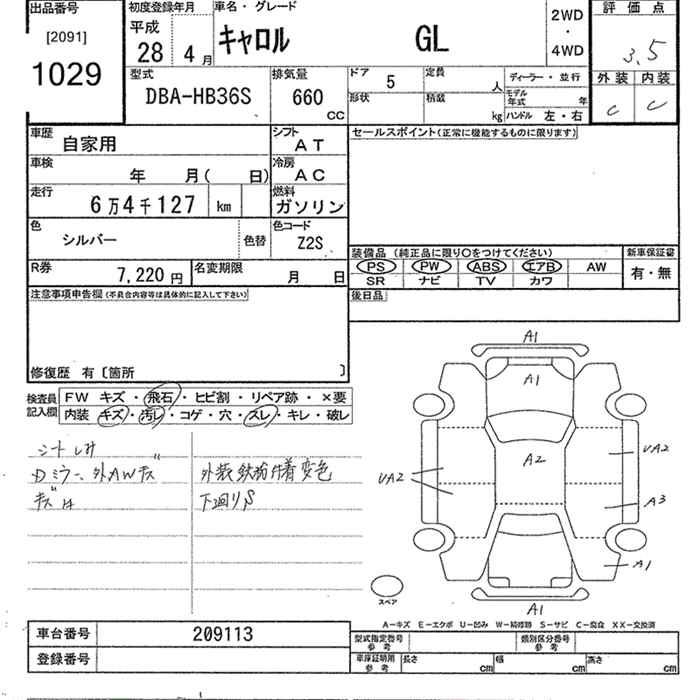 出品番号 初度登録年月 車名・グレード 2WD ・ 4WD 評価点
[2091] 平成 28 4月 キャロル GL 3.5
1029
型式 排気量 ドア 5 定員 人 ディーラー・並行 外装 内装
DBA-HB36S 660 CC 形状 積載 kg モデル年式 年 C C
ハンドル 左・右
車歴 自家用 シフト AT セールスポイント(正常に機能するものに限ります)
車検 年 月( 日) 冷房 AC
走行 6万4千127 km 燃料 ガソリン
色 シルバー 色替 色コード Z2S
装備品 (純正品に限り〇をつけてください) 新車保証書
R券 7,220円 名変期限 月 日 PS PW ABS エアB AW 有・無
SR ナビ TV カワ
注意事項申告欄(不具合内容等は具体的に記入して下さい) 後日品
修復歴 有〔箇所 〕
検査員記入欄 FW キズ・飛石・ヒビ割・リペア跡・×要
内装 キズ・汚レ・コゲ・穴・スレ・キレ・破レ
シートしみ
Dミラー、外AWキズ 外装鉄粉付着変色
下廻りS
A1
A1
A2
UA2
UA2
A3
A1
A1
スペア
A-キズ E-エクボ U-凹み W-補修跡 S-サビ C-腐食 XX-交換済
車台番号 209113 型式指定番号 参考 類別区分番号 参考
登録番号 車庫証明用 参考 長さ cm 幅 cm 高さ cm